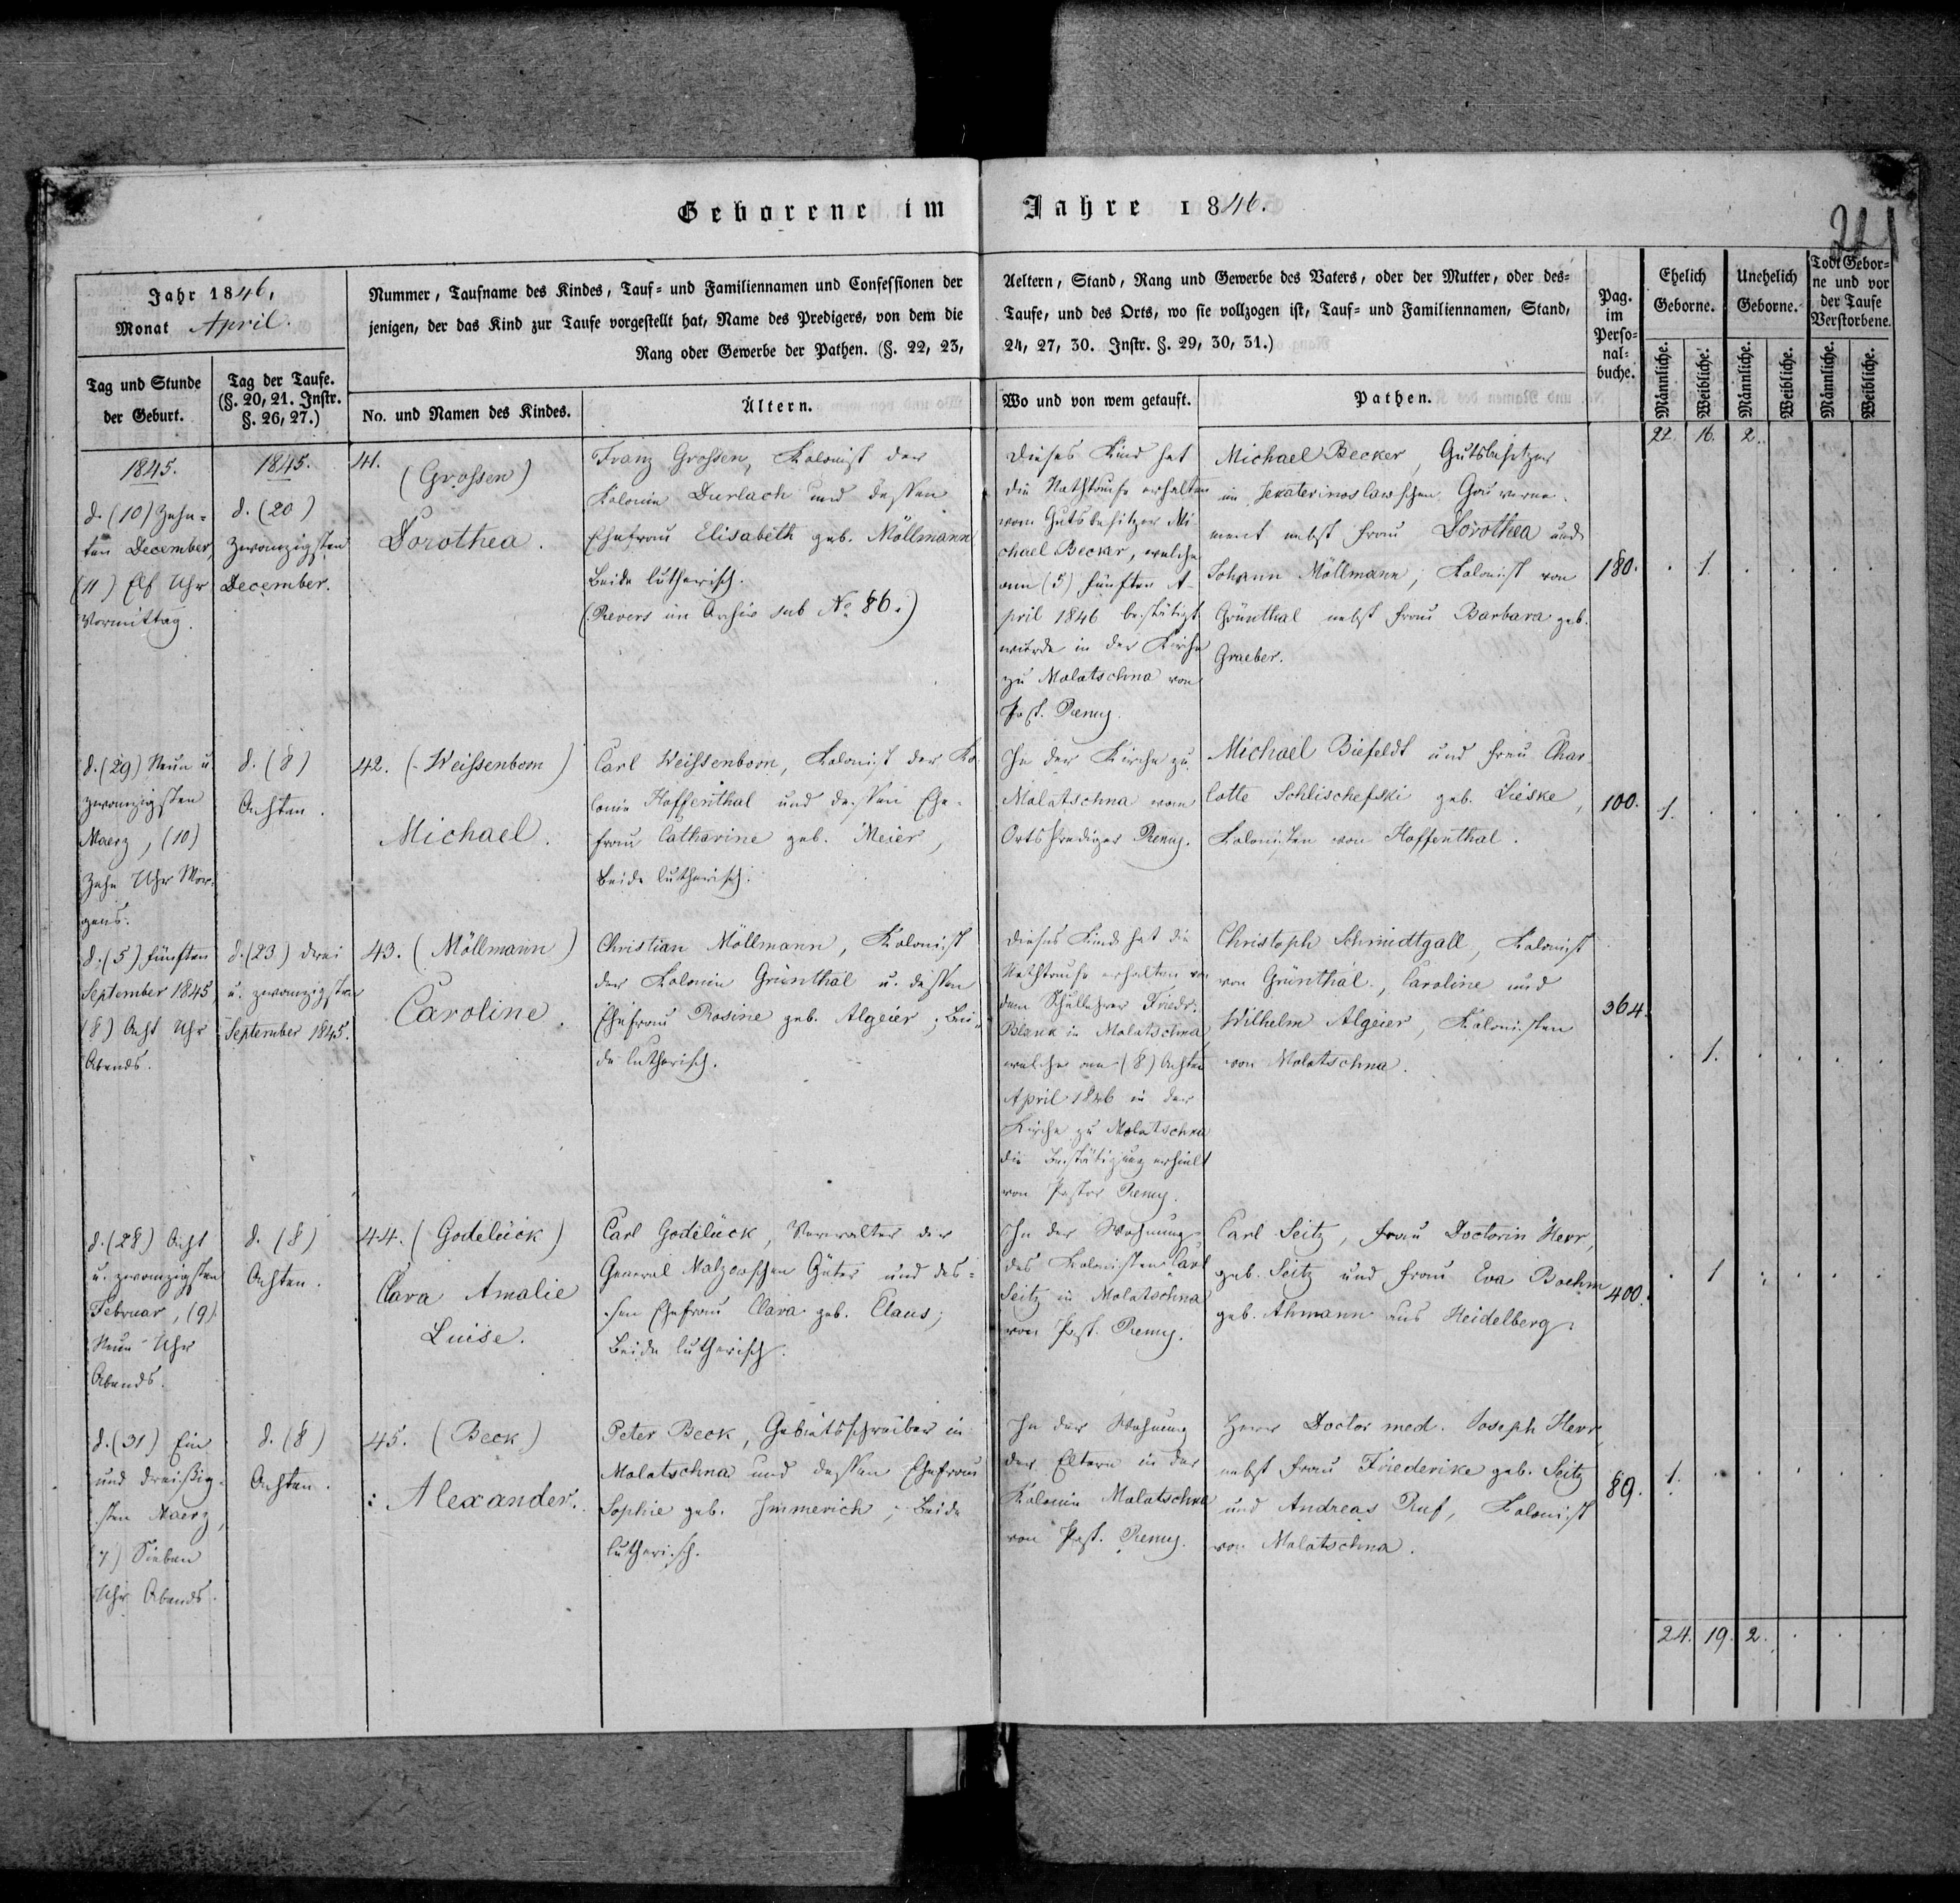 Geborene im Jahre 1846.
221
Jahr 1846,
Monat April.
Tag und Stunde
der Geburt.
Tag der Taufe.
(§. 20, 21. Instr.
§. 26, 27.)
Nummer, Taufname des Kindes, Tauf- und Familiennamen und Confessionen der
jenigen, der das Kind zur Taufe vorgestellt hat, Name des Predigers, von dem die
Rang oder Gewerbe der Pathen. (§. 22, 23,
No. und Namen des Kindes.
Ältern.
Aeltern, Stand, Rang und Gewerbe des Vaters, oder der Mutter, oder des-
Taufe, und des Orts, wo sie vollzogen ist, Tauf- und Familiennamen, Stand,
24, 27, 30. Instr. §. 29, 30, 31.)
Wo und von wem getauft.
Pathen.
Pag.
im
Perso-
nal-
buche.
Ehelich
Geborne.
Unehelich
Geborne.
Todt Gebor-
ne und vor
der Taufe
Verstorbene.
Männliche.
Weibliche.
Männliche.
Weibliche.
Männliche.
Weibliche.
22. 16. 2.
1845.
d. (10) Zehn-
ten December,
(11) Elf Uhr
Vormittag.
1845.
d. (20)
zwanzigsten
December.
41.
(Großen)
Dorothea.
Franz Großen, Kolonist der
Kolonie Durlach und dessen
Ehefrau Elisabeth geb. Möllmann
beide lutherisch.
(Revers im Archiv sub No 86.)
Dieses Kind hat
die Nothtaufe erhalten
vom Gutsbesitzer Mi
chael Becker, welche
am (5) fünften A-
pril 1846 bestätigt
wurde in der Kirche
zu Molotschna von
Past. Remy.
Michael Becker, Gutsbesitzer
im Jekaterinoslawschen Gouverne-
ment nebst Frau Dorothea und
Johann Möllmann, Kolonist von
Grünthal nebst Frau Barbara geb.
Graeber.
180.
. 1. . . . .
d. (29) Neun u.
zwanzigsten
Maerz, (10)
Zehn Uhr Mor-
gens.
d. (8)
Achten.
42. (Weißenborn)
Michael.
Carl Weißenborn, Kolonist der Ko-
lonie Hoffenthal und dessen Ehe-
frau Catharine geb. Meier,
beide lutherisch.
In der Kirche zu
Molotschna vom
Ortsprediger Remy.
Michael Biefeldt und Frau Char
lotte Schlischefski geb. Lieske,
Kolonisten von Hoffenthal.
100.
1. . . . . .
d. (5) fünften
September 1845,
(8) Acht Uhr
Abends.
d. (23) drei
u. zwanzigsten
September 1845.
43. (Möllmann)
Caroline.
Christian Möllmann, Kolonist
der Kolonie Grünthal u. dessen
Ehefrau Rosine geb. Algeier, Bei-
de lutherisch.
Dieses Kind hat die
Nothtaufe erhalten von
dem Schullehrer Friedr.
Blank in Molotschna,
welche am (8) Achten
April 1846 in der
Kirche zu Molotschna
die Bestätigung erhielt
von Pastor Remy.
Christoph Schmidtgall, Kolonist
von Grünthal, Caroline und
Wilhelm Algeier, Kolonisten
von Molotschna.
364.
. 1. . . . .
d. (28) Acht
u. zwanzigsten
Februar, (9)
Neun Uhr
Abends.
d. (8)
Achten.
44. (Godelück)
Clara Amalie
Luise.
Carl Godelück, Verwalter der
General Malzowschen Güter und des-
sen Ehefrau Clara geb. Claus;
beide lutherisch.
In der Wohnung
des Kolonisten Carl
Seitz in Molotschna
von Past. Remy.
Carl Seitz, Frau Doctorin Herr,
geb. Seitz und Frau Eva Boehm
geb. Ahmann aus Heidelberg.
400.
. 1 . . . .
d. (31) Ein
und dreißig-
sten Maerz,
(7) Sieben
Uhr Abends.
d. (8)
Achten.
45. (Beck)
Alexander.
Peter Beck, Gebietsschreiber in
Molotschna und dessen Ehefrau
Sophie geb. Immerich, beide
lutherisch.
In der Wohnung
der Eltern in der
Kolonie Molotschna
von Past. Remy.
Herr Doctor med. Joseph Herr,
nebst Frau Friederike geb. Seitz
und Andreas Ruf, Kolonist
von Molotschna.
89.
1. . . . . .
24. 19. 2. . . .